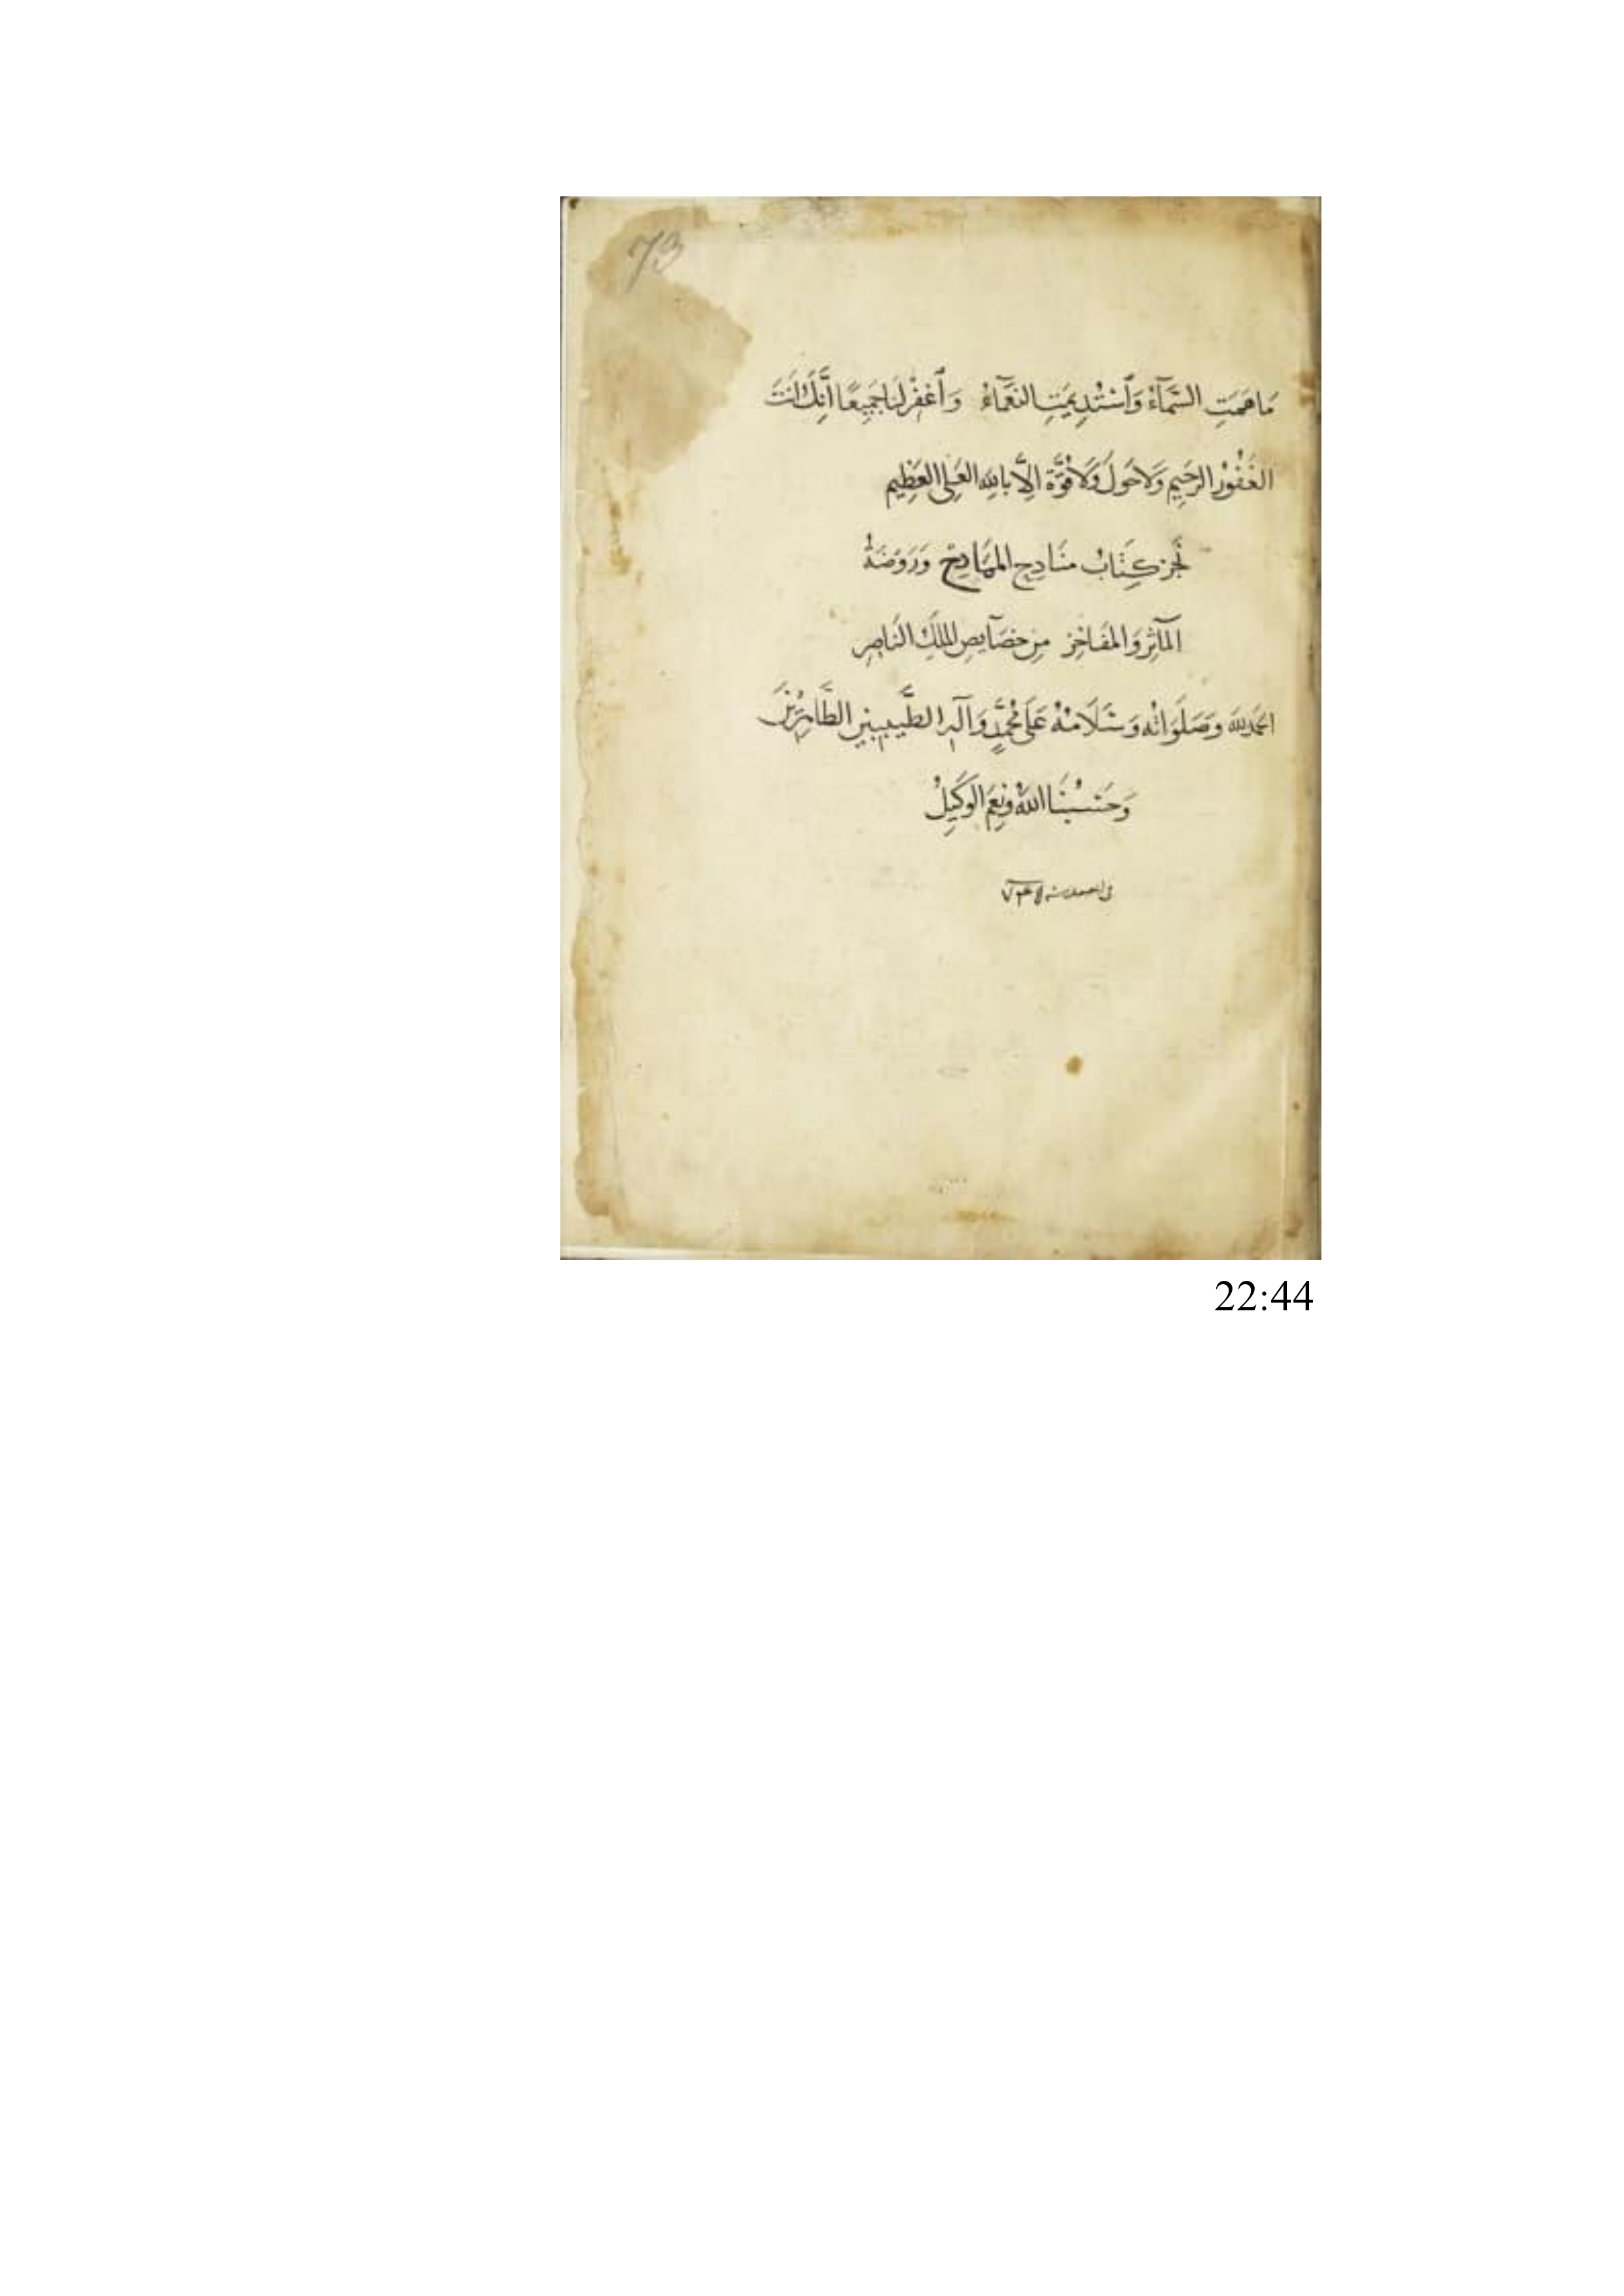 73
مَا هَمَتِ السَّمَآءُ وَٱسْتُدِيمَتِ النَّعْمَآءُ وَٱغْفِرْ لَنَا جَمِيعًا إِنَّكَ أَنْتَ
الغَفُوْرُ الرَّحِيمِ وَلَا حَوْلَ وَلَا قُوَّةَ إِلَّا بِاللهِ العَلِيِّ العَظِيمِ
نَجَزَ كِتَابُ مَنَادِحِ المَمَادِحِ وَرَوْضَةُ
المَآثِرِ وَالمَفَاخِرِ مِنْ خَصَآيِصِ المَلِكِ النَّاصِرِ
الحَمْدُ لِلّهِ وَصَلَوَاتُه وَسَلَامُهُ عَلَى مُحَمَّدٍ وَآلِهِ الطَّيِّبِينَ الطَّاهِرِيْنَ
وَحَسْبُنَا اللهُ وَنِعْمَ الوَكِيلُ
22:44